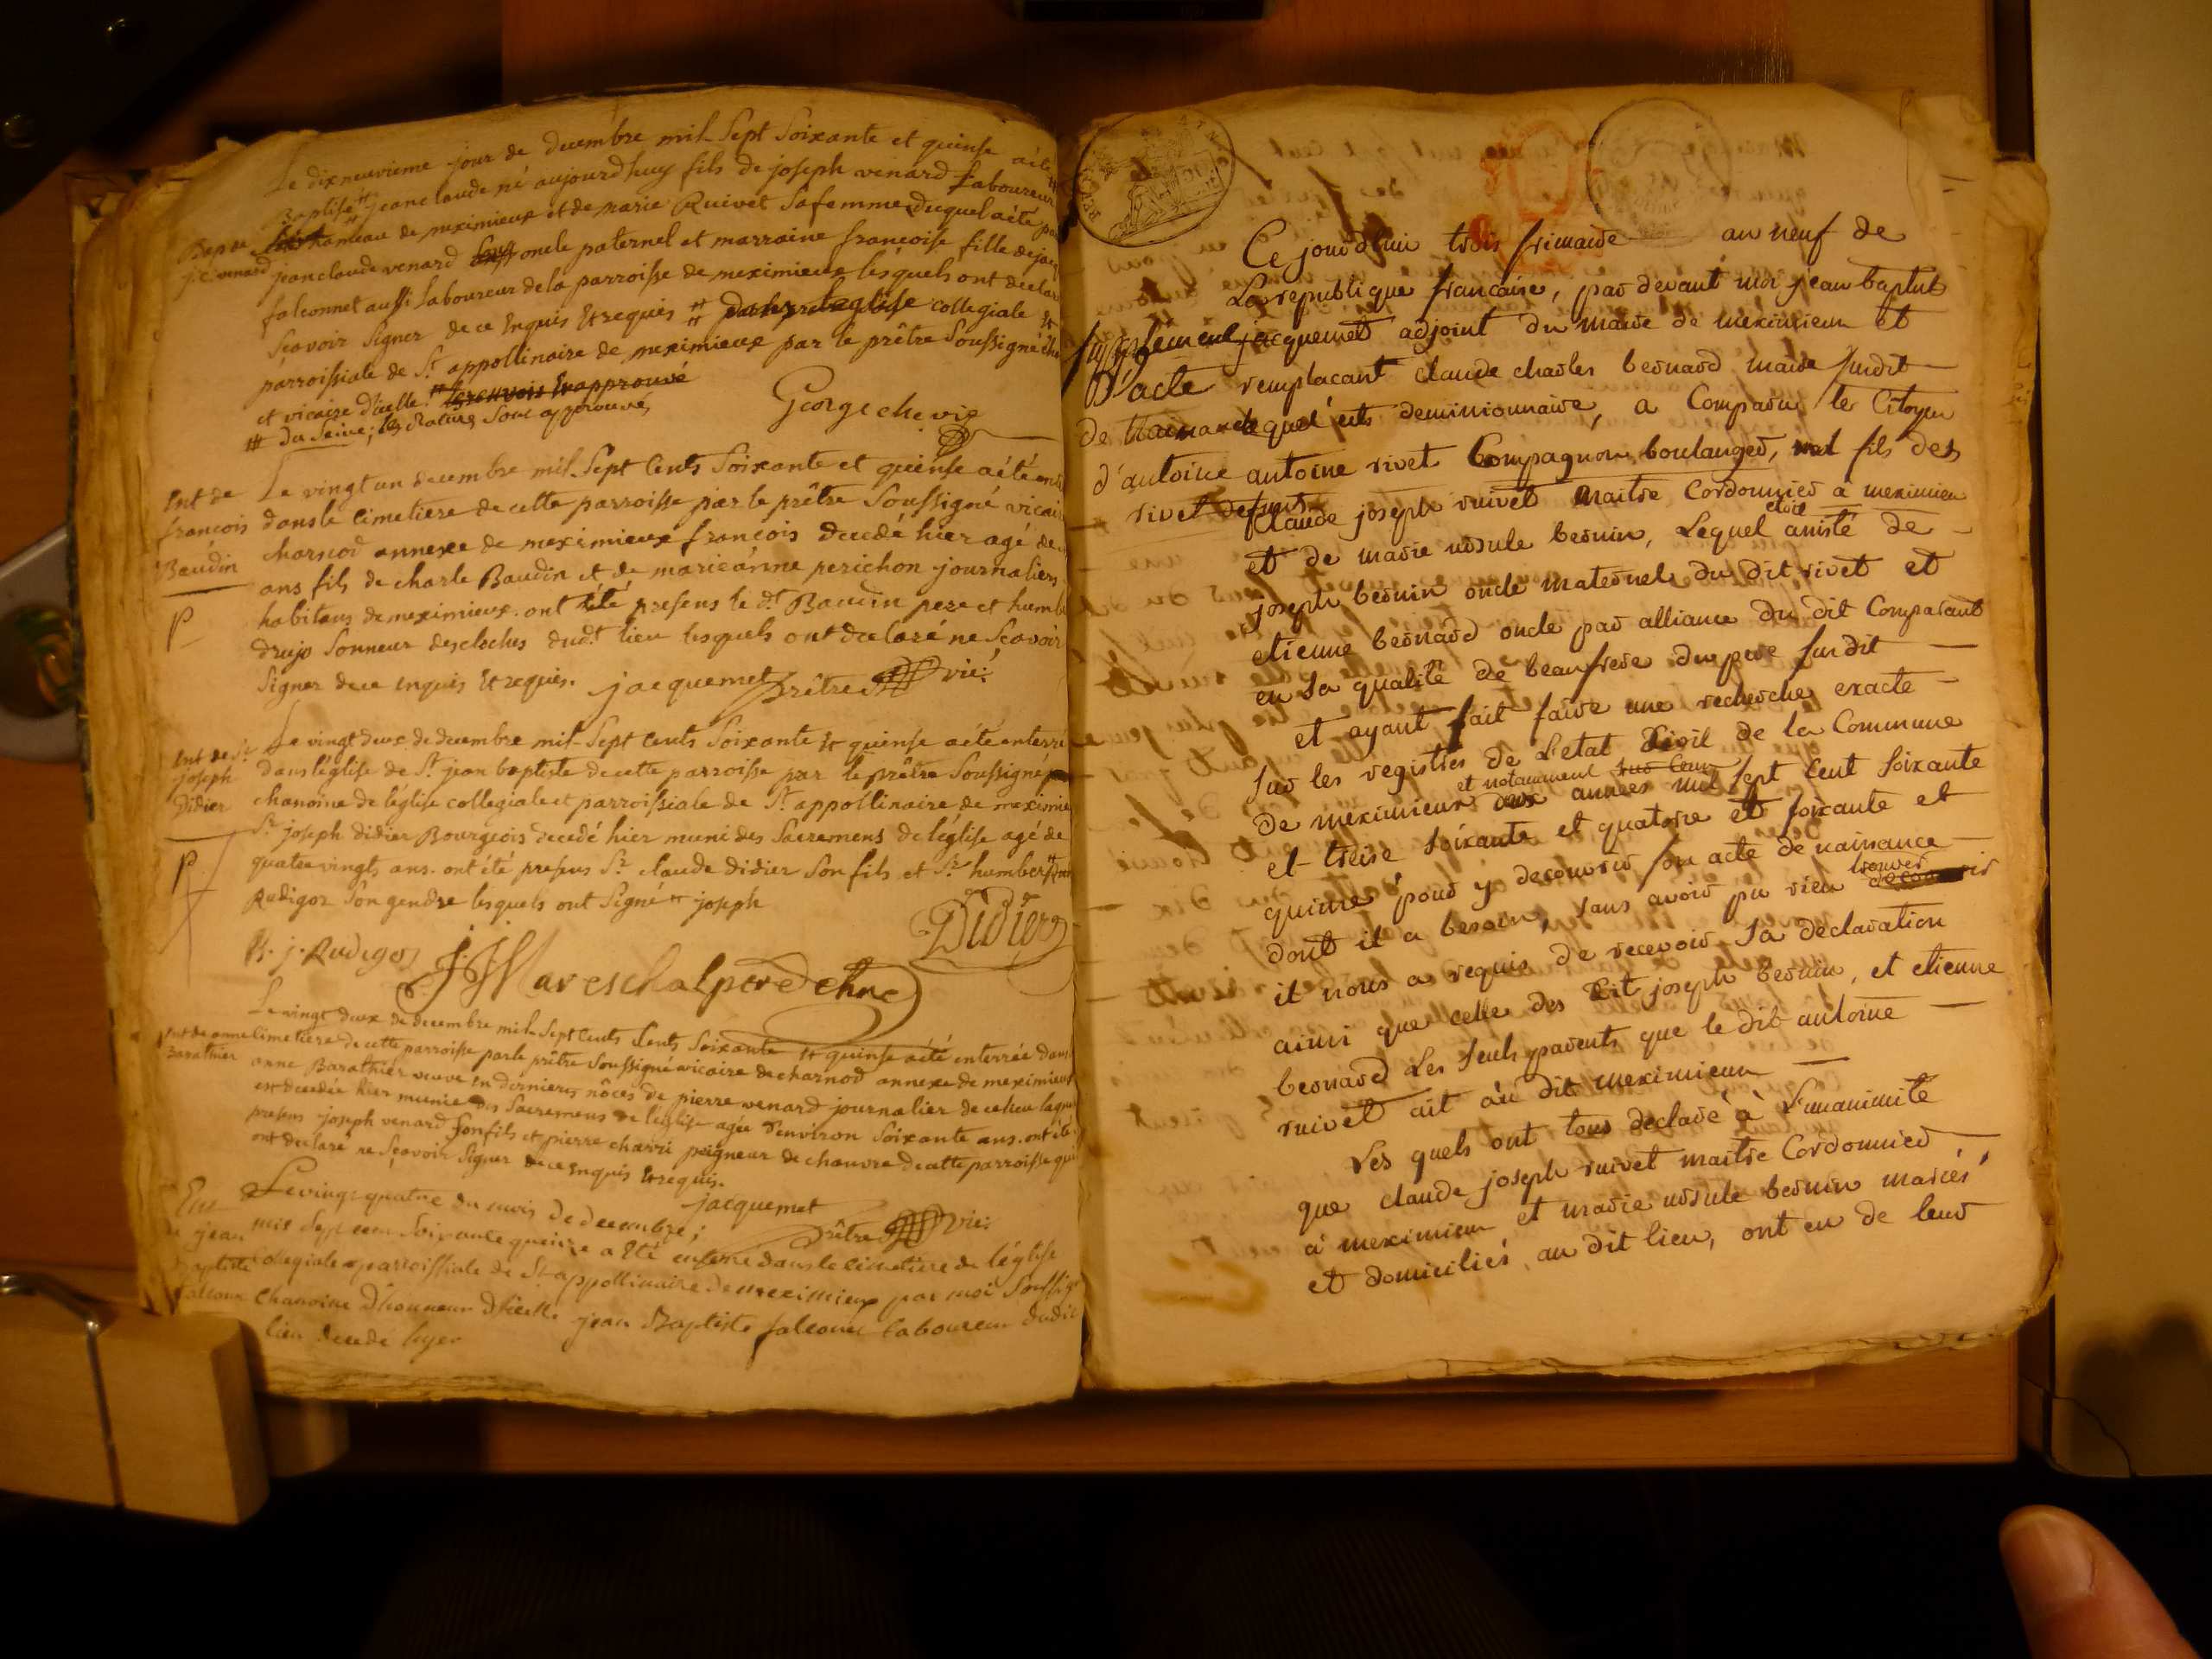 Le dixneuvieme jour de decembre mil Sept Soixante et quinse aété
Baptisé jeanclaude né aujourdhuy fils de joseph venard Laboureur
Bap de hameau de meximieux et de marie Ruivet Safemme, duquel aété
j.c. venard jeanclaude venard oncle paternel et marraine françoise fille de
falconnet aussi Laboureur dela parroisse de meximieux lesquels ont
Scavoir Signer de ce Enquis Et requis collegiale Et
parroissiale de St appollinaire de meximieux par le prêtre Soussigné
et vicaire dicelle.
Sont approuvés
George
Ent de Le vingt un decembre mil Sept Cents Soixante et quinse aété
françois dansle Cimetiere de cette parroisse par le prêtre Soussigné
Baudin charnod annexe de meximieux françois decedé hier agé de
ans fils de charle Baudin et de marieánne perichon journaliers
P habitans de meximieux. ont été presens le dt Baudin pere et
drujo Sonneur descloches dudt lieu lesquels ont declaré ne Sçavoir
Signer dece enquis Et requis. jacquemet prêtre vic:
Le vingt deux de decembre mil Sept Cents Soixante Et quinse aété enterré
Ent de Sr
joseph dans l'église de St jean baptiste de cette parroisse par le prêtre Soussigné
Didier chanoine de léglise collegiale et parroissiale de St appollinaire de
Sr joseph didier Bourgeois decedé hier muni des Sacremens de léglise agé de
P quatrevingts ans. ont été presens Sr claude didier Son fils et Sr
Rudigoz Son gendre lesquels ont Signé joseph
Didier
h. j. Rudigoz
Le vingt deux de decembre mil Sept Cents Cents Soixante Et quinse aété enterrée dans
Ent de anne
Barathier Cimetiere de cette parroisse par le prêtre Soussigné vicaire de charnod annexe de meximieux
anne Barathier veuve en dernieres nôces de pierre venard journalier de celieu
est decedée hier munie des Sacremens de léglise agée d'environ Soixante ans. ont été
presens joseph venard Sonfils et pierre charri peigneur de chanvre decette parroisse
ont declaré ne Sçavoir Signer dece enquis Et requis.
jacquemet
prêtre vic:
Levingt quatre du mois De decembre;
jean mil Sept cent Soixante quinze a Eté enterré dans le cimetiere de léglise
collegiale parroissiale de St appollinaire De meximieux par moi
chanoine Dhonneur jean Baptiste falconet Laboureur dudit
lieu decedé hyer
Ce jourdhui trois frimaire an neuf de
La republique francaise, par devant moi jean baptiste
Supplement jacquemet adjoint du maire de meximieux et
D'acte remplacant claude charles bernard maire Susdit
de Naissance lequel est demissionnaire, a Comparu le Citoyen
d'antoine antoine rivet Compagnon boulanger, fils des
rivet
Claude joseph ruivet maitre Cordonnier a meximieux
et de marie ursule bernin, Lequel assisté de
joseph bernin oncle maternel du dit rivet et
etienne bernard oncle par alliance du dit Comparant
en Sa qualité de beaufrere du pere Susdit
et ayant fait faire une recherche exacte
Sur les registres de L'etat Civil de la Commune
et notamment
de meximieux aux années mil Sept Cent Soixante
et treise Soixante et quatorse et Soixante et
quinse pour y decouvrir son acte de naissance
trouver
dont il a besoin, Sans avoir pu rien
il nous a requis de recevoir Sa declaration
ainsi que celle des dit joseph bernin, et etienne
bernard Les Seuls parents que le dit antoine
ruivet ait au dit meximieux
Les quels ont tous declaré à L'unanimité
que claude joseph ruivet maitre Cordonnier
à meximieux et marie ursule bernin mariés
et domiciliés au dit lieu, ont eu de leur